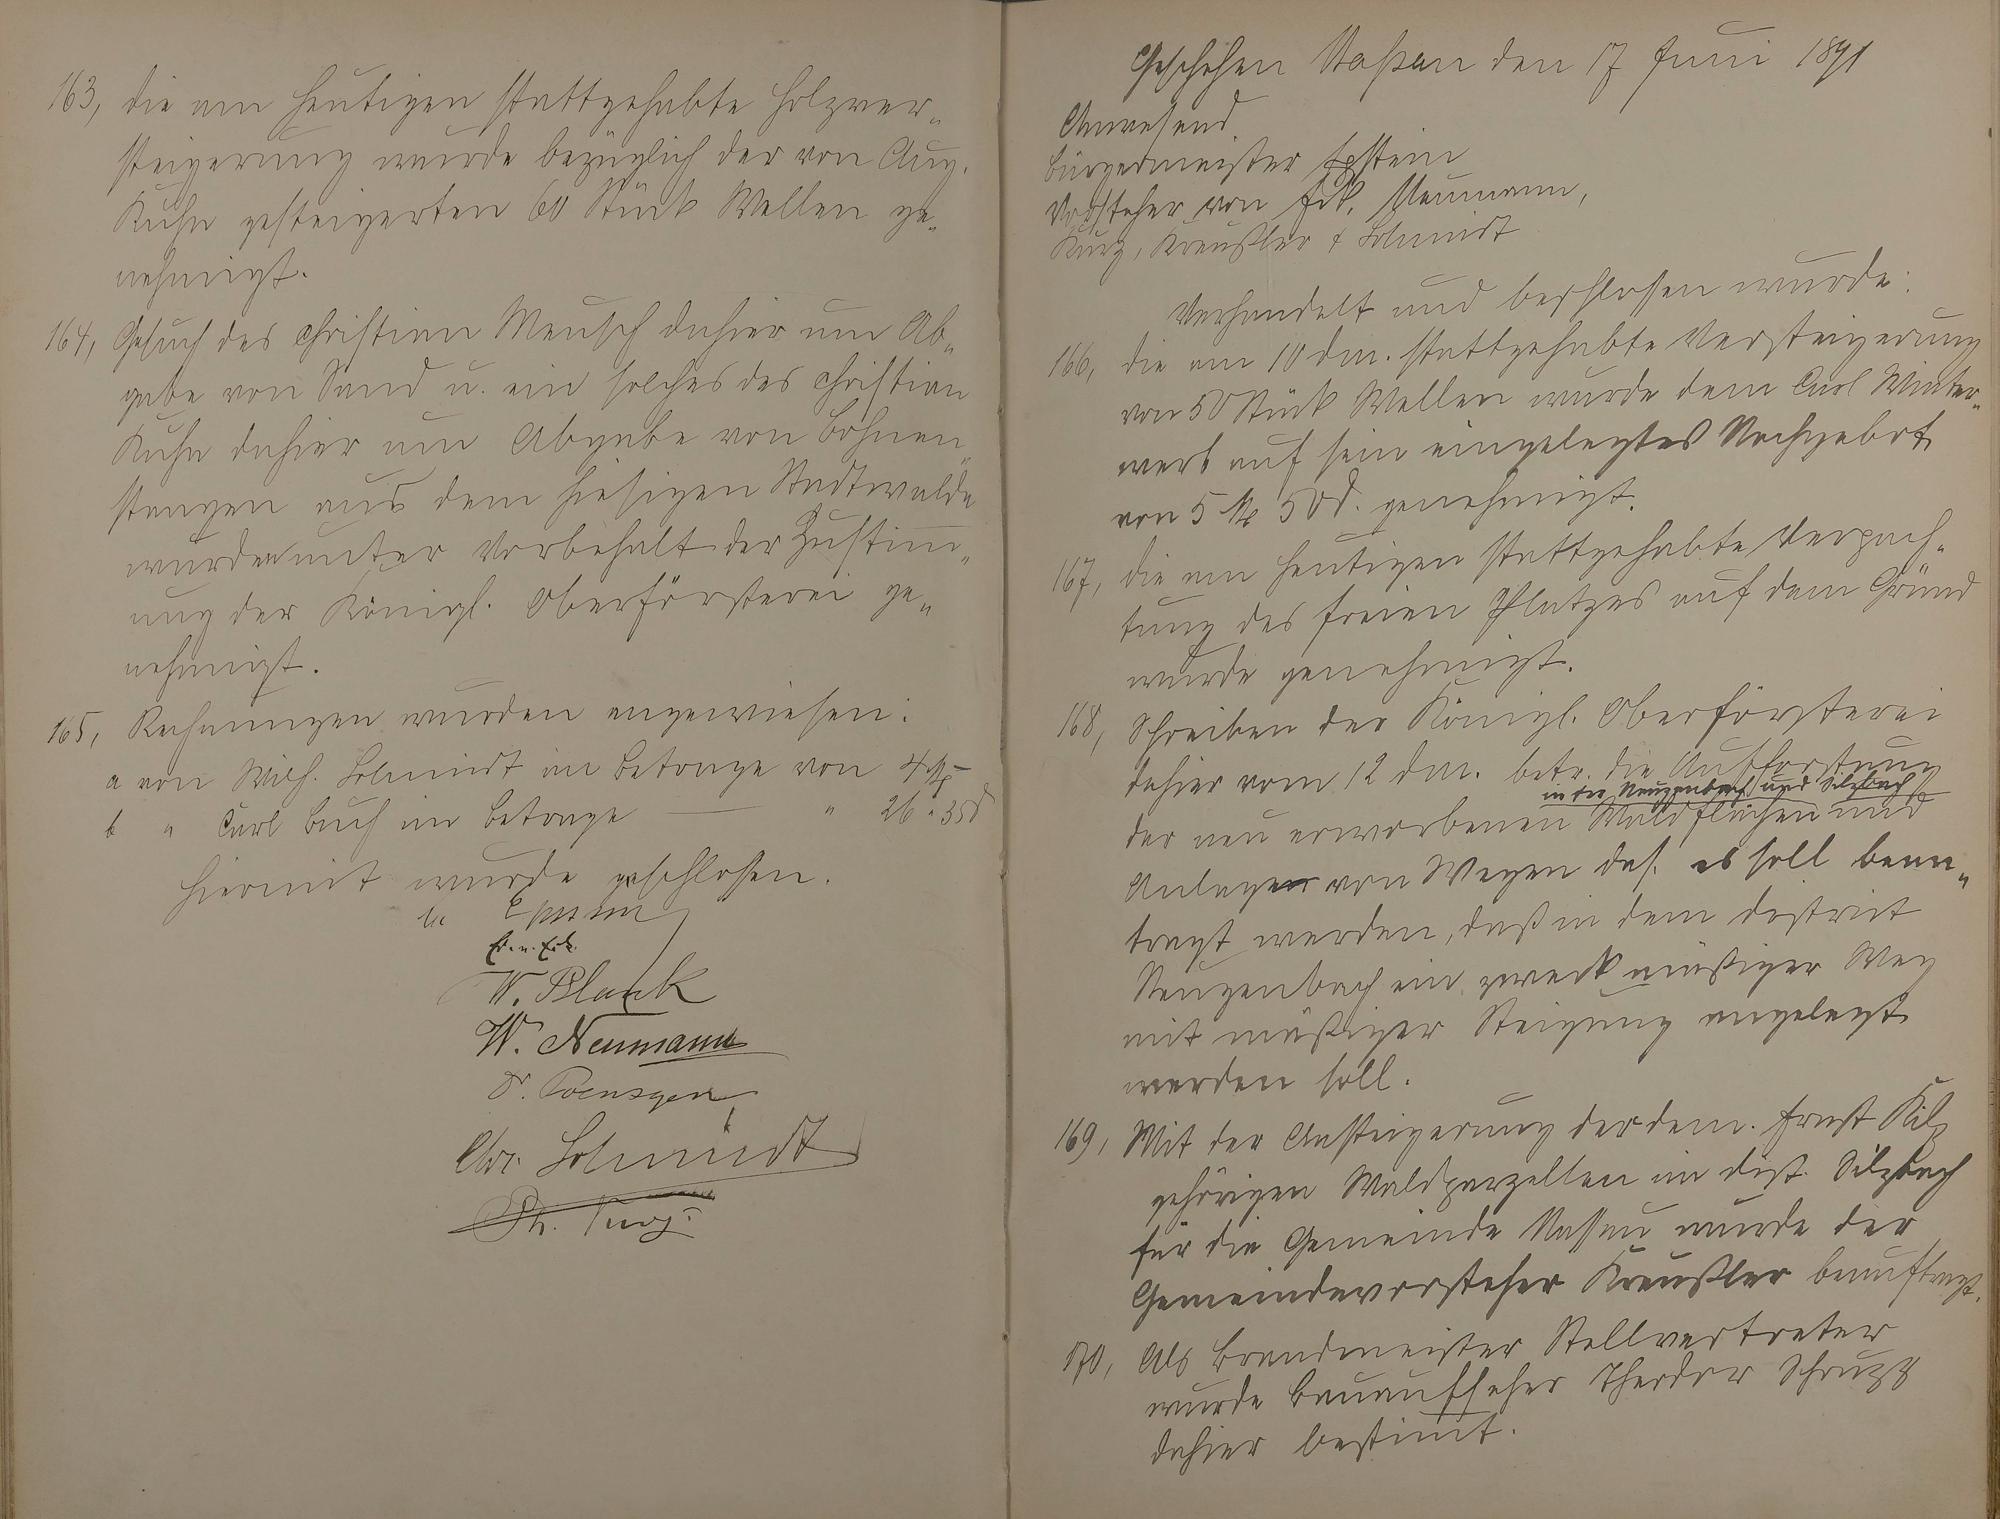 163, die am heutigen stattgehabte Holzver-
steigerung wurde bezüglich der von Aug.
Kuhn gesteigerten 60 Stück Wellen ge-
nehmigt.
164, Gesuch des Christian Meusch dahier um Ab-
gabe von Sand u. ein solches des Christian
Kuhn dahier um Abgabe von Bohnen-
stangen aus dem hiesigen Stadtwalde
wurden unter Vorbehalt der Zustim-
ung der Königl. Oberförsterei ge-
nehmigt.
165, Rechnungen wurden angewiesen:
a von Wilh. Schmidt im Betrage von 4 M –
b " Carl Buch im Betrage — " 26 " 35 d
Hiermit wurde geschlossen.
Epstein
W. Blank
W. Neumann
Dr. Poensgen
Chr. Schmidt
Ph. Kurz
Geschehen Nassau den 17 Juni 1891
Anwesend
Bürgermeister Epstein
Vorsteher von Eck, Neumann,
Kurz, Kreußler & Schmidt
Verhandelt und beschlossen wurde:
166, die am 10 dm. stattgehabte Versteigerung
von 50 Stück Wellen wurde dem Carl Winter-
werb auf sein eingelegtes Nachgebot
von 5 M 50 d. genehmigt.
167, die am heutigen stattgehabte Verpach-
tung des freien Platzes auf dem Gründ
wurde genehmigt.
168, Schreiben der Königl. Oberförsterei
dahier vom 12 dm. betr. die Aufforstung
in der Neuzenbach und Silzbach
der neu erworbenen Waldflächen und
Anlagen von Wegen das. es soll bean-
tragt werden, daß in dem District
Neuzenbach ein zweckmäßiger Weg
mit mäßiger Steigung angelegt
werden soll.
169, Mit der Ansteigerung der dem Ernst Kilz
gehörigen Waldparzellen im Dist. Silzbach
für die Gemeinde Nassau wurde der
Gemeindevorsteher Kreußler beauftragt.
170, Als Brandmeister Stellvertreter
wurde Bauaufseher Theodor
dahier bestimt.